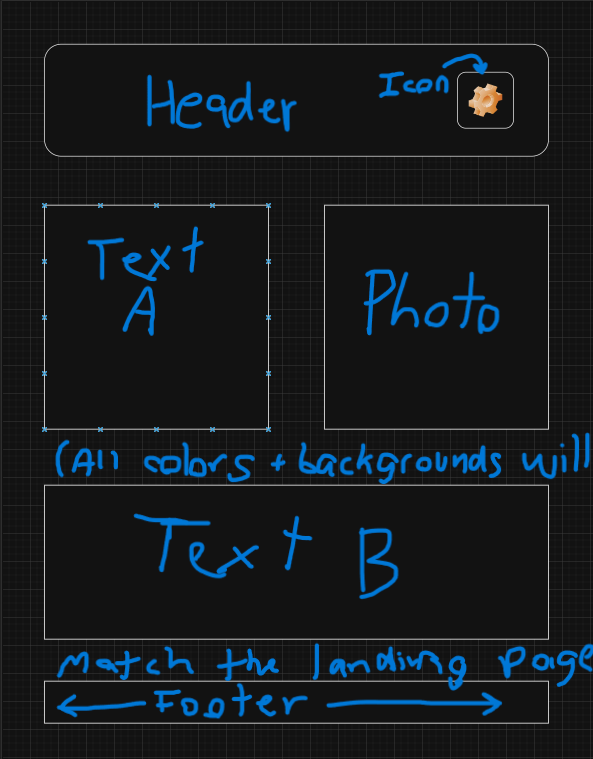 Icon
Header
Text
A
Photo
(All colors + backgrounds will
Text B
Match the landing page
Footer